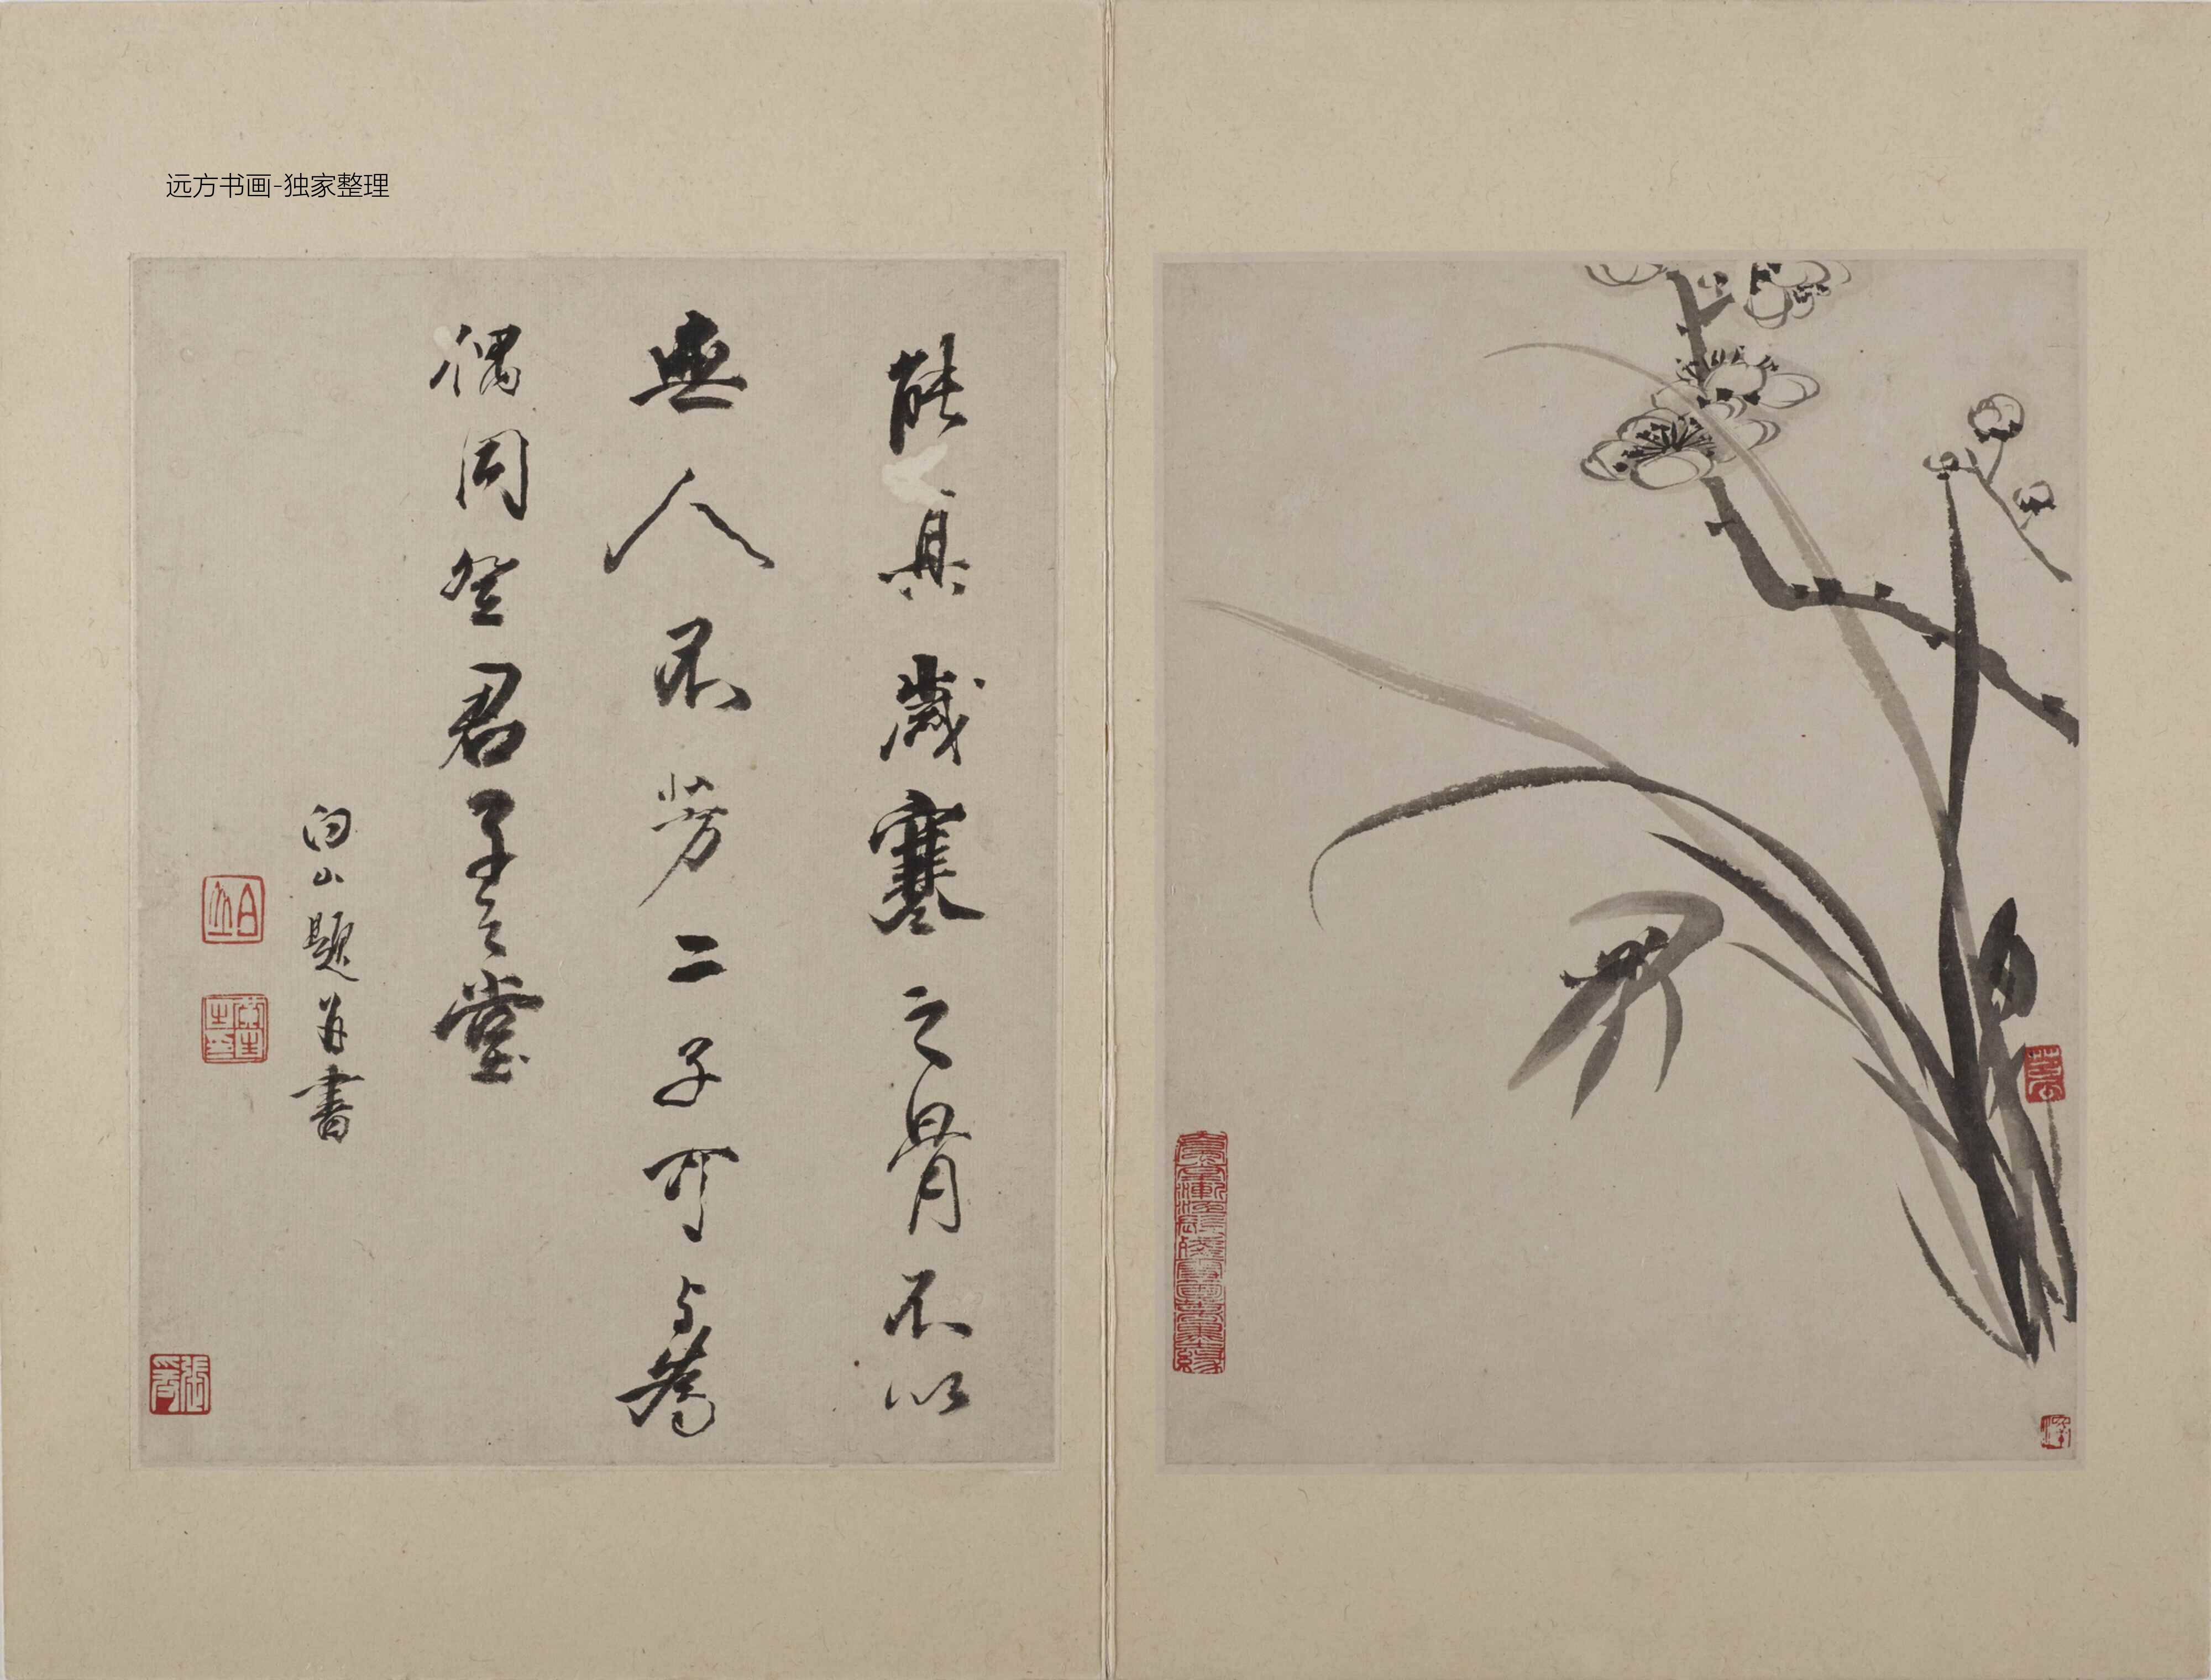 远方书画-独家整理
能具歲寒之骨不以
無人不芳二子可与為
偶同登君子之堂
白山題并書
白山